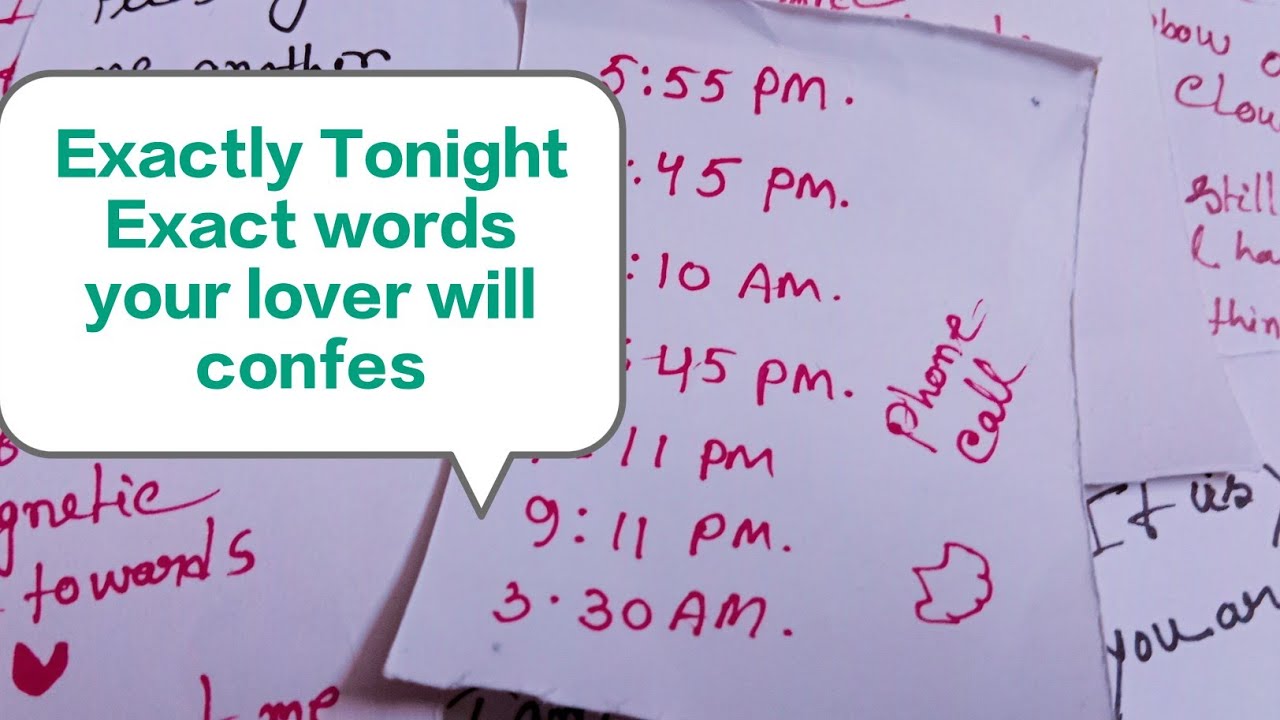 me another
Exactly Tonight
Exact words
your lover will
confes
5:55 PM.
:45 PM.
:10 AM.
45 PM.
11 PM
9:11 PM.
3.30 AM.
Phone
Call
gnetic
towards
t me
bow o
Clou
Still
I ha
thin
It is
you ar